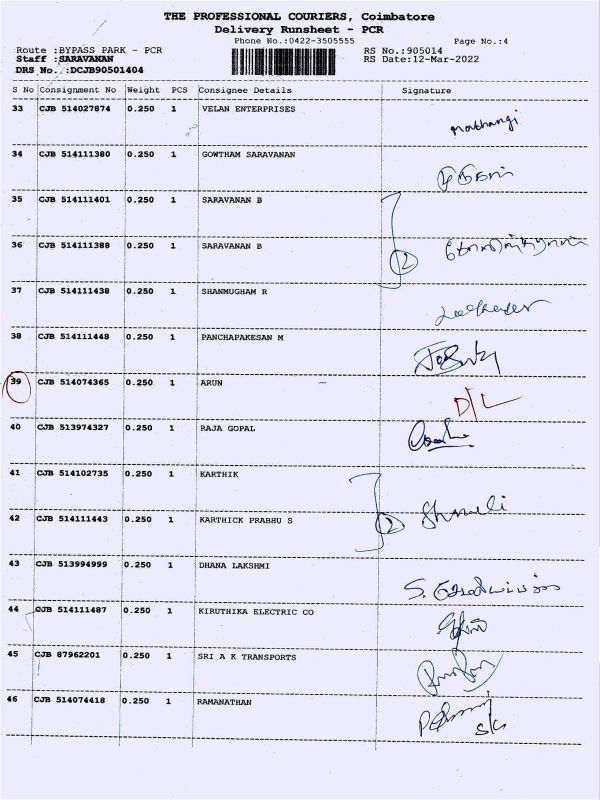 THE PROFESSIONAL COURIERS, Coimbatore
Delivery Runsheet - PCR
Phone No.:0422-3505555
Page No.:4
Route :BYPASS PARK - PCR
RS No.:905014
Staff :SARAVANAN
RS Date:12-Mar-2022
DRS No. :DCJB90501404
S No Consignment No Weight PCS Consignee Details Signature
33 CJB 514027874 0.250 1 VELAN ENTERPRISES
34 CJB 514111380 0.250 1 GOWTHAM SARAVANAN
35 CJB 514111401 0.250 1 SARAVANAN B
36 CJB 514111388 0.250 1 SARAVANAN B 2
37 CJB 514111438 0.250 1 SHANMUGHAM R
38 CJB 514111448 0.250 1 PANCHAPAKESAN M
39 CJB 514074365 0.250 1 ARUN D/L
40 CJB 513974327 0.250 1 RAJA GOPAL
41 CJB 514102735 0.250 1 KARTHIK
42 CJB 514111443 0.250 1 KARTHICK PRABHU S 2
43 CJB 513994999 0.250 1 DHANA LAKSHMI
44 CJB 514111487 0.250 1 KIRUTHIKA ELECTRIC CO
45 CJB 87962201 0.250 1 SRI A K TRANSPORTS
46 CJB 514074418 0.250 1 RAMANATHAN